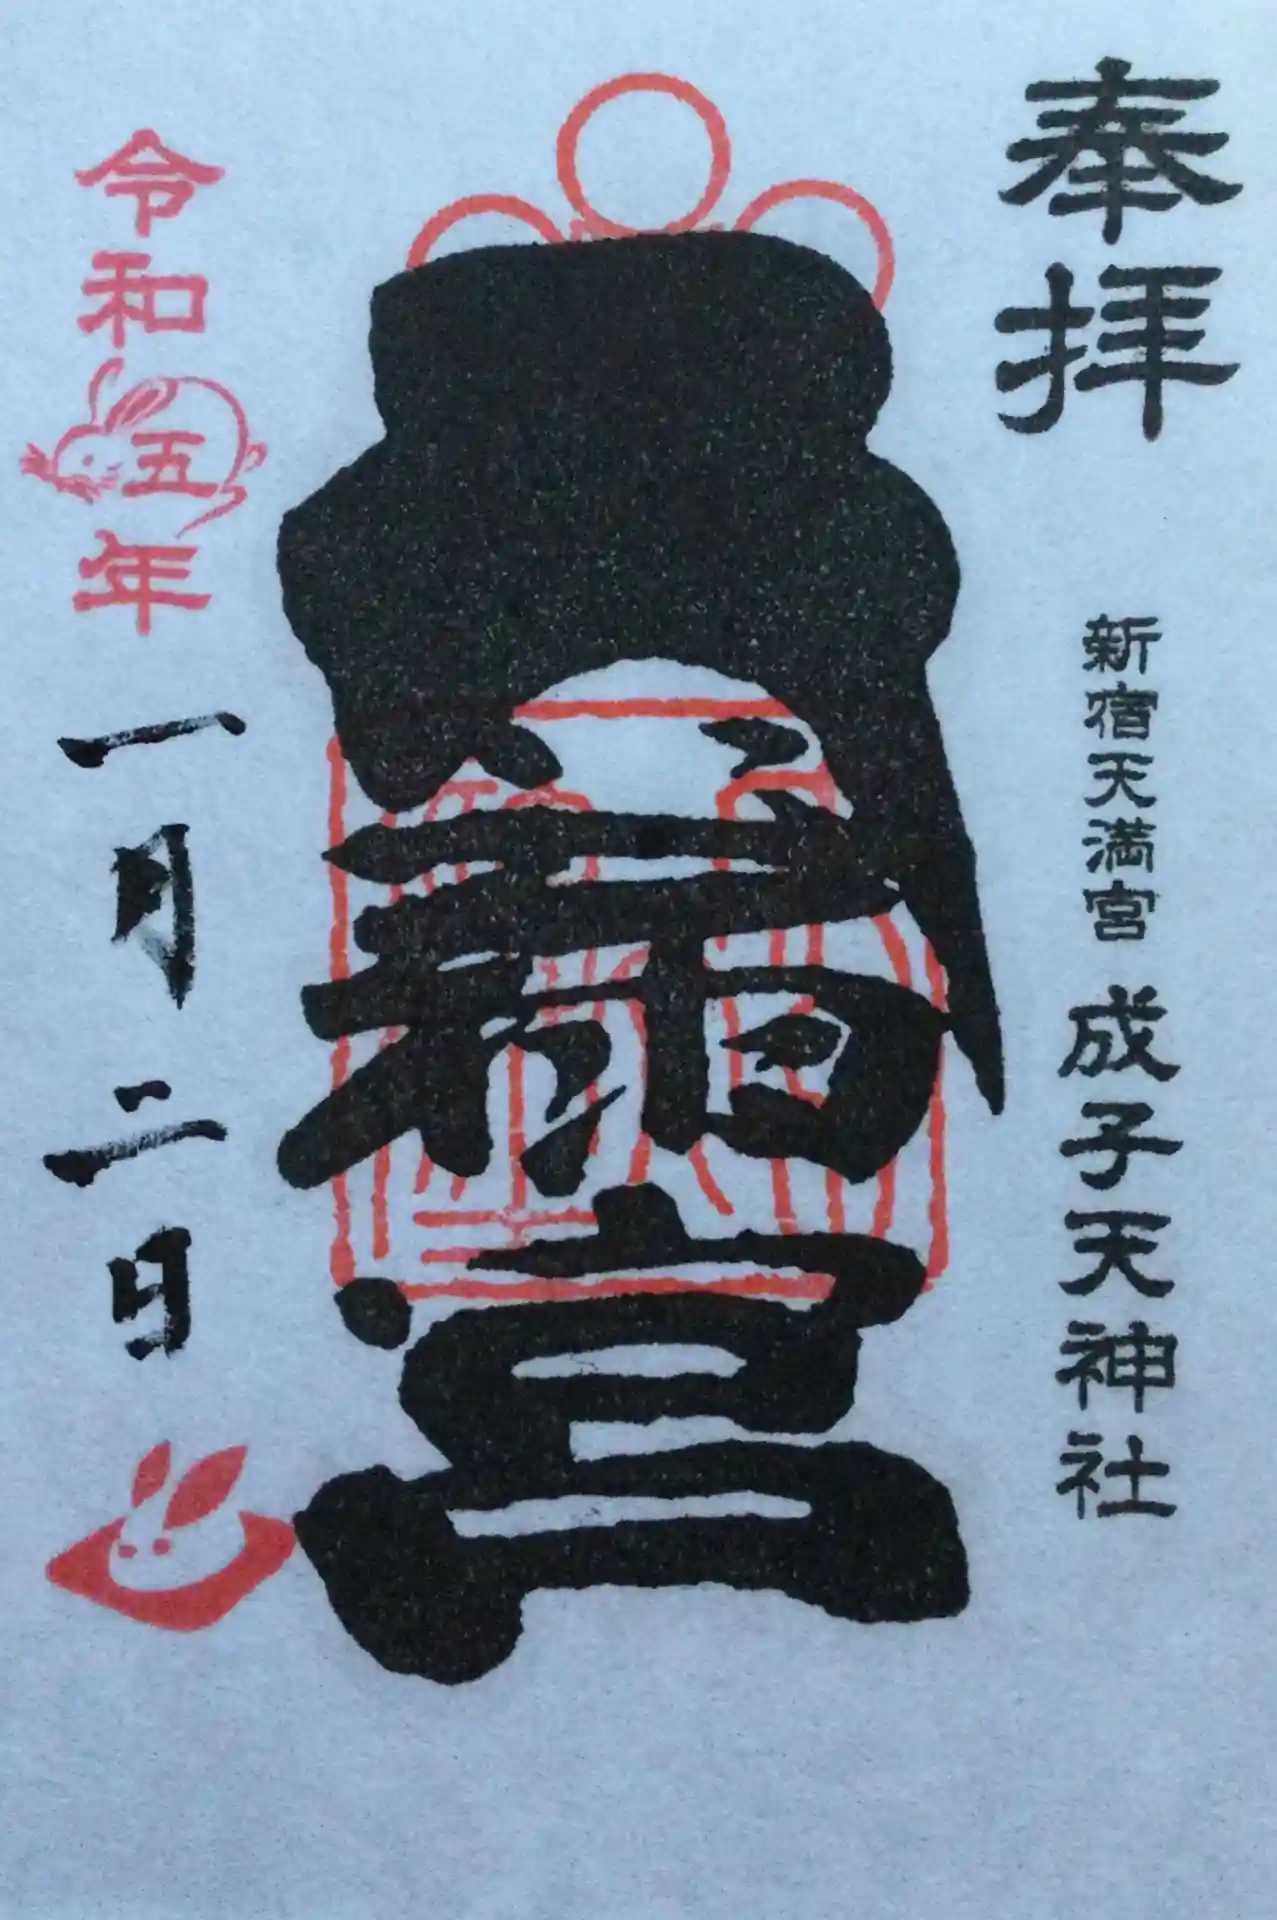 奉拝
新宿天満宮 成子天神社
令和五年一月二日